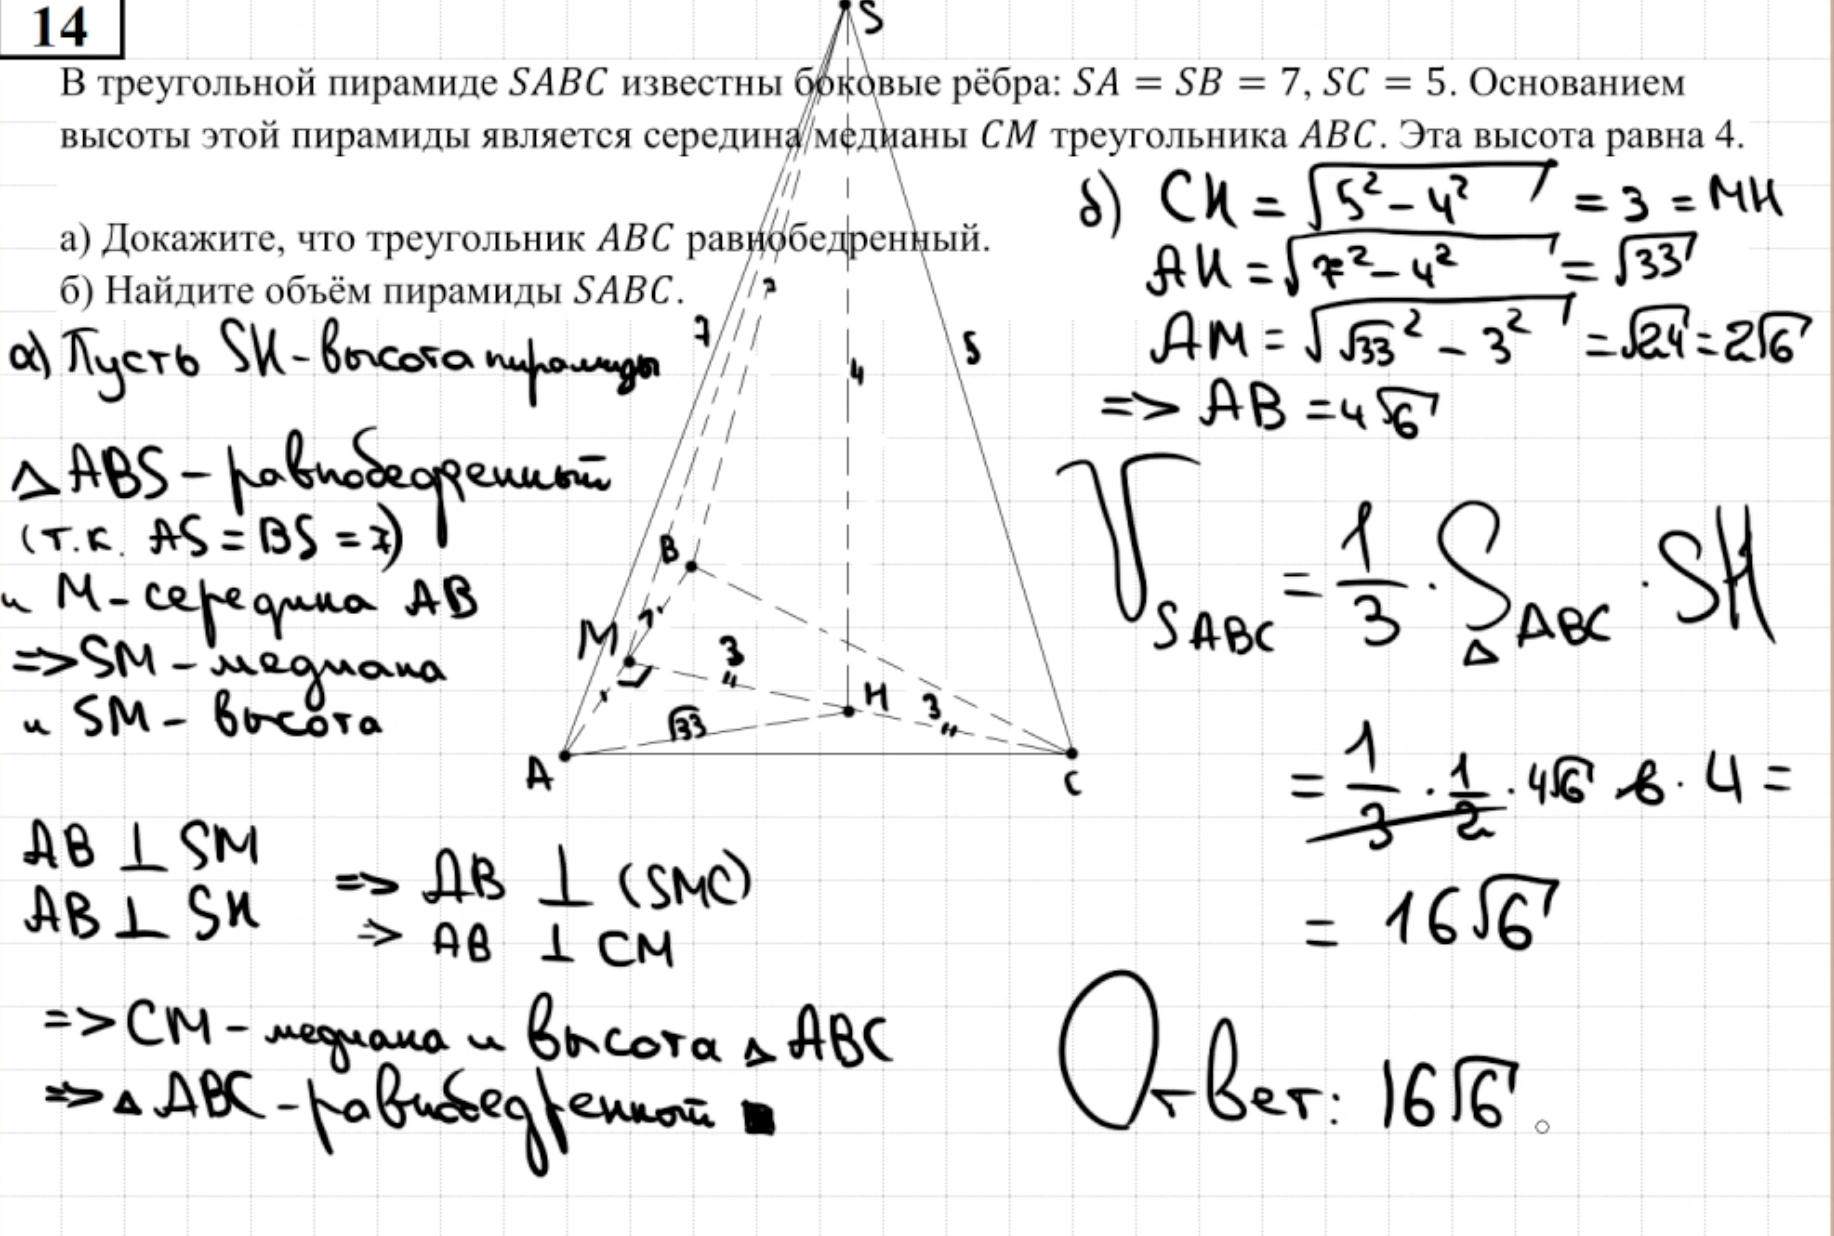 14
В треугольной пирамиде SABC известны боковые рёбра: SA = SB = 7, SC = 5. Основанием
высоты этой пирамиды является середина медианы CM треугольника ABC. Эта высота равна 4.
а) Докажите, что треугольник ABC равнобедренный.
б) Найдите объём пирамиды SABC.
а) Пусть SH - высота пирамиды
△ ABS - равнобедренный
(т.к. AS = BS = 7)
и M - середина AB
=> SM - медиана
и SM - высота
AB ⊥ SM
AB ⊥ SH
=> AB ⊥ (SMC)
=> AB ⊥ CM
=> CM - медиана и высота △ ABC
=> △ ABC - равнобедренный ■
S
7
7
4
5
B
M
3
H
3
√33
A
C
б) CH = √(5² - 4²) = 3 = MH
AH = √(7² - 4²) = √33
AM = √(√33² - 3²) = √24 = 2√6
=> AB = 4√6
V SABC = 1/3 · S △ABC · SH
= 1/3 · 1/2 · 4√6 · 6 · 4 =
= 16√6
Ответ: 16√6.